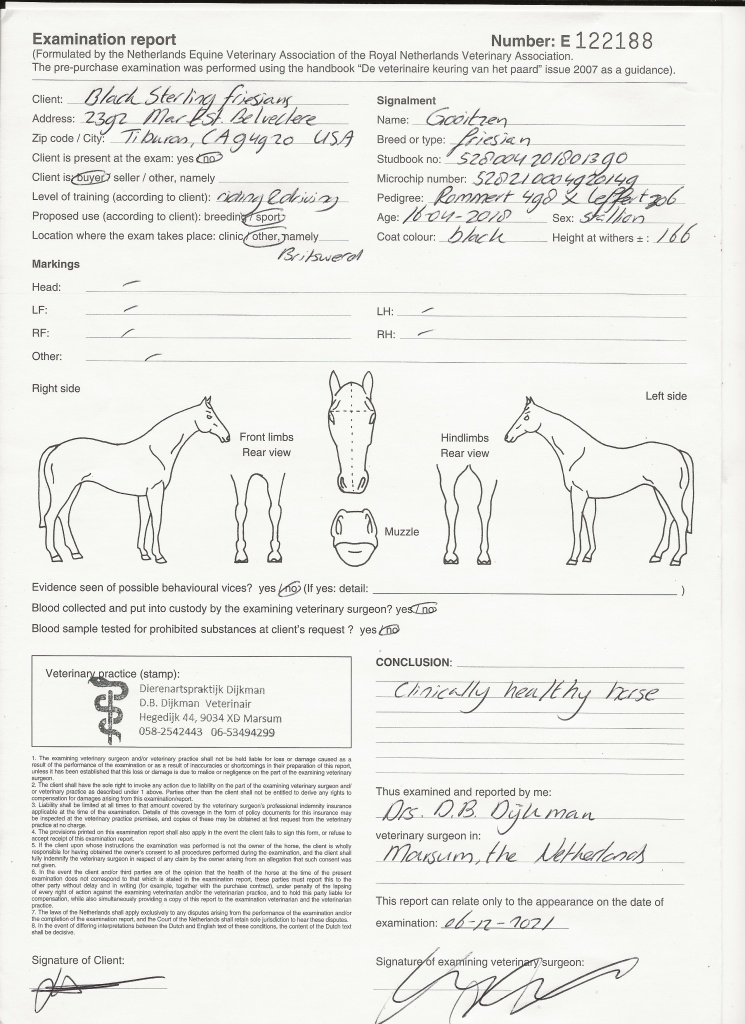 Examination report
Number: E 122188
(Formulated by the Netherlands Equine Veterinary Association of the Royal Netherlands Veterinary Association.
The pre-purchase examination was performed using the handbook "De veterinaire keuring van het paard" issue 2007 as a guidance).
Client: Black Sterling friesians
Address: 2392 Mar East Belvedere
Zip code / City: Tiburon, CA 94920 USA
Client is present at the exam: yes / no
Client is: buyer / seller / other, namely
Level of training (according to client): riding & driving
Proposed use (according to client): breeding / sport
Location where the exam takes place: clinic / other, namely
Britswerd
Signalment
Name: Gooitzen
Breed or type: friesian
Studbook no: 528004201801390
Microchip number: 528210004920149
Pedigree: Rommert 498 x Leffert 306
Age: 16-04-2018 Sex: stallion
Coat colour: black Height at withers ± : 166
Markings
Head: –
LF: –
LH: –
RF: –
RH: –
Other: –
Right side
Left side
Front limbs
Rear view
Hindlimbs
Rear view
Muzzle
Evidence seen of possible behavioural vices? yes / no (If yes: detail: )
Blood collected and put into custody by the examining veterinary surgeon? yes / no
Blood sample tested for prohibited substances at client's request ? yes / no
Veterinary practice (stamp):
Dierenartspraktijk Dijkman
D.B. Dijkman Veterinair
Hegedijk 44, 9034 XD Marsum
058-2542443 06-53494299
CONCLUSION:
Clinically healthy horse
1. The examining veterinary surgeon and/or veterinary practice shall not be held liable for loss or damage caused as a
result of the performance of the examination or as a result of inaccuracies or shortcomings in their preparation of this report,
unless it has been established that this loss or damage is due to malios or negligence on the part of the examining veterinary
surgeon.
2. The client shall have the sole right to invoke any action due to liability on the part of the examining veterinary surgeon and/
or veterinary practice as described under 1 above. Parties other than the client shall not be entitled to derive any rights to
compensation for damages arising from this examination/report.
3. Liability shall be limited at all times to that amount covered by the veterinary surgeon's professional indemnity insurance
applicable at the time of the examination. Details of the coverage in the form of policy documents for this insurance may
be inspected at the veterinary practice premises, and copies of these may be obtained at first request from the veterinary
practice at no charge.
4. The provisions printed on this examination report shall also apply in the event the client fails to sign this form, or refuse to
accept receipt of this examination report.
5. If the client upon whose instructions the examination was performed is not the owner of the horse, the client is wholly
responsible for having obtained the owner's consent to all procedures performed during the examination, and the client shall
fully indemnify the veterinary surgeon in respect of any claim by the owner arising from an allegation that such consent was
not given.
6. In the event the client and/or third parties are of the opinion that the health of the horse at the time of the present
examination does not correspond to that which is stated in the examination report, these parties must report this to the
other party without delay and in writing (for example, together with the purchase contract), under penalty of the lapsing
of every right of action against the examining veterinarian and/or the veterinarian practice, and to hold this party liable for
compensation, while also simultaneously providing a copy of this report to the examination veterinarian and the veterinarian
practice.
7. The laws of the Netherlands shall apply exclusively to any disputes arising from the performance of the examination and/or
the completion of the examination report, and the Court of the Netherlands shall retain sole jurisdiction to hear these disputes.
8. In the event of differing interpretations between the Dutch and English text of these conditions, the content of the Dutch text
shall be decisive.
Thus examined and reported by me:
Drs. D.B. Dijkman
veterinary surgeon in:
Marsum, the Netherlands
This report can relate only to the appearance on the date of
examination: 06-12-2021
Signature of Client:
Signature of examining veterinary surgeon: